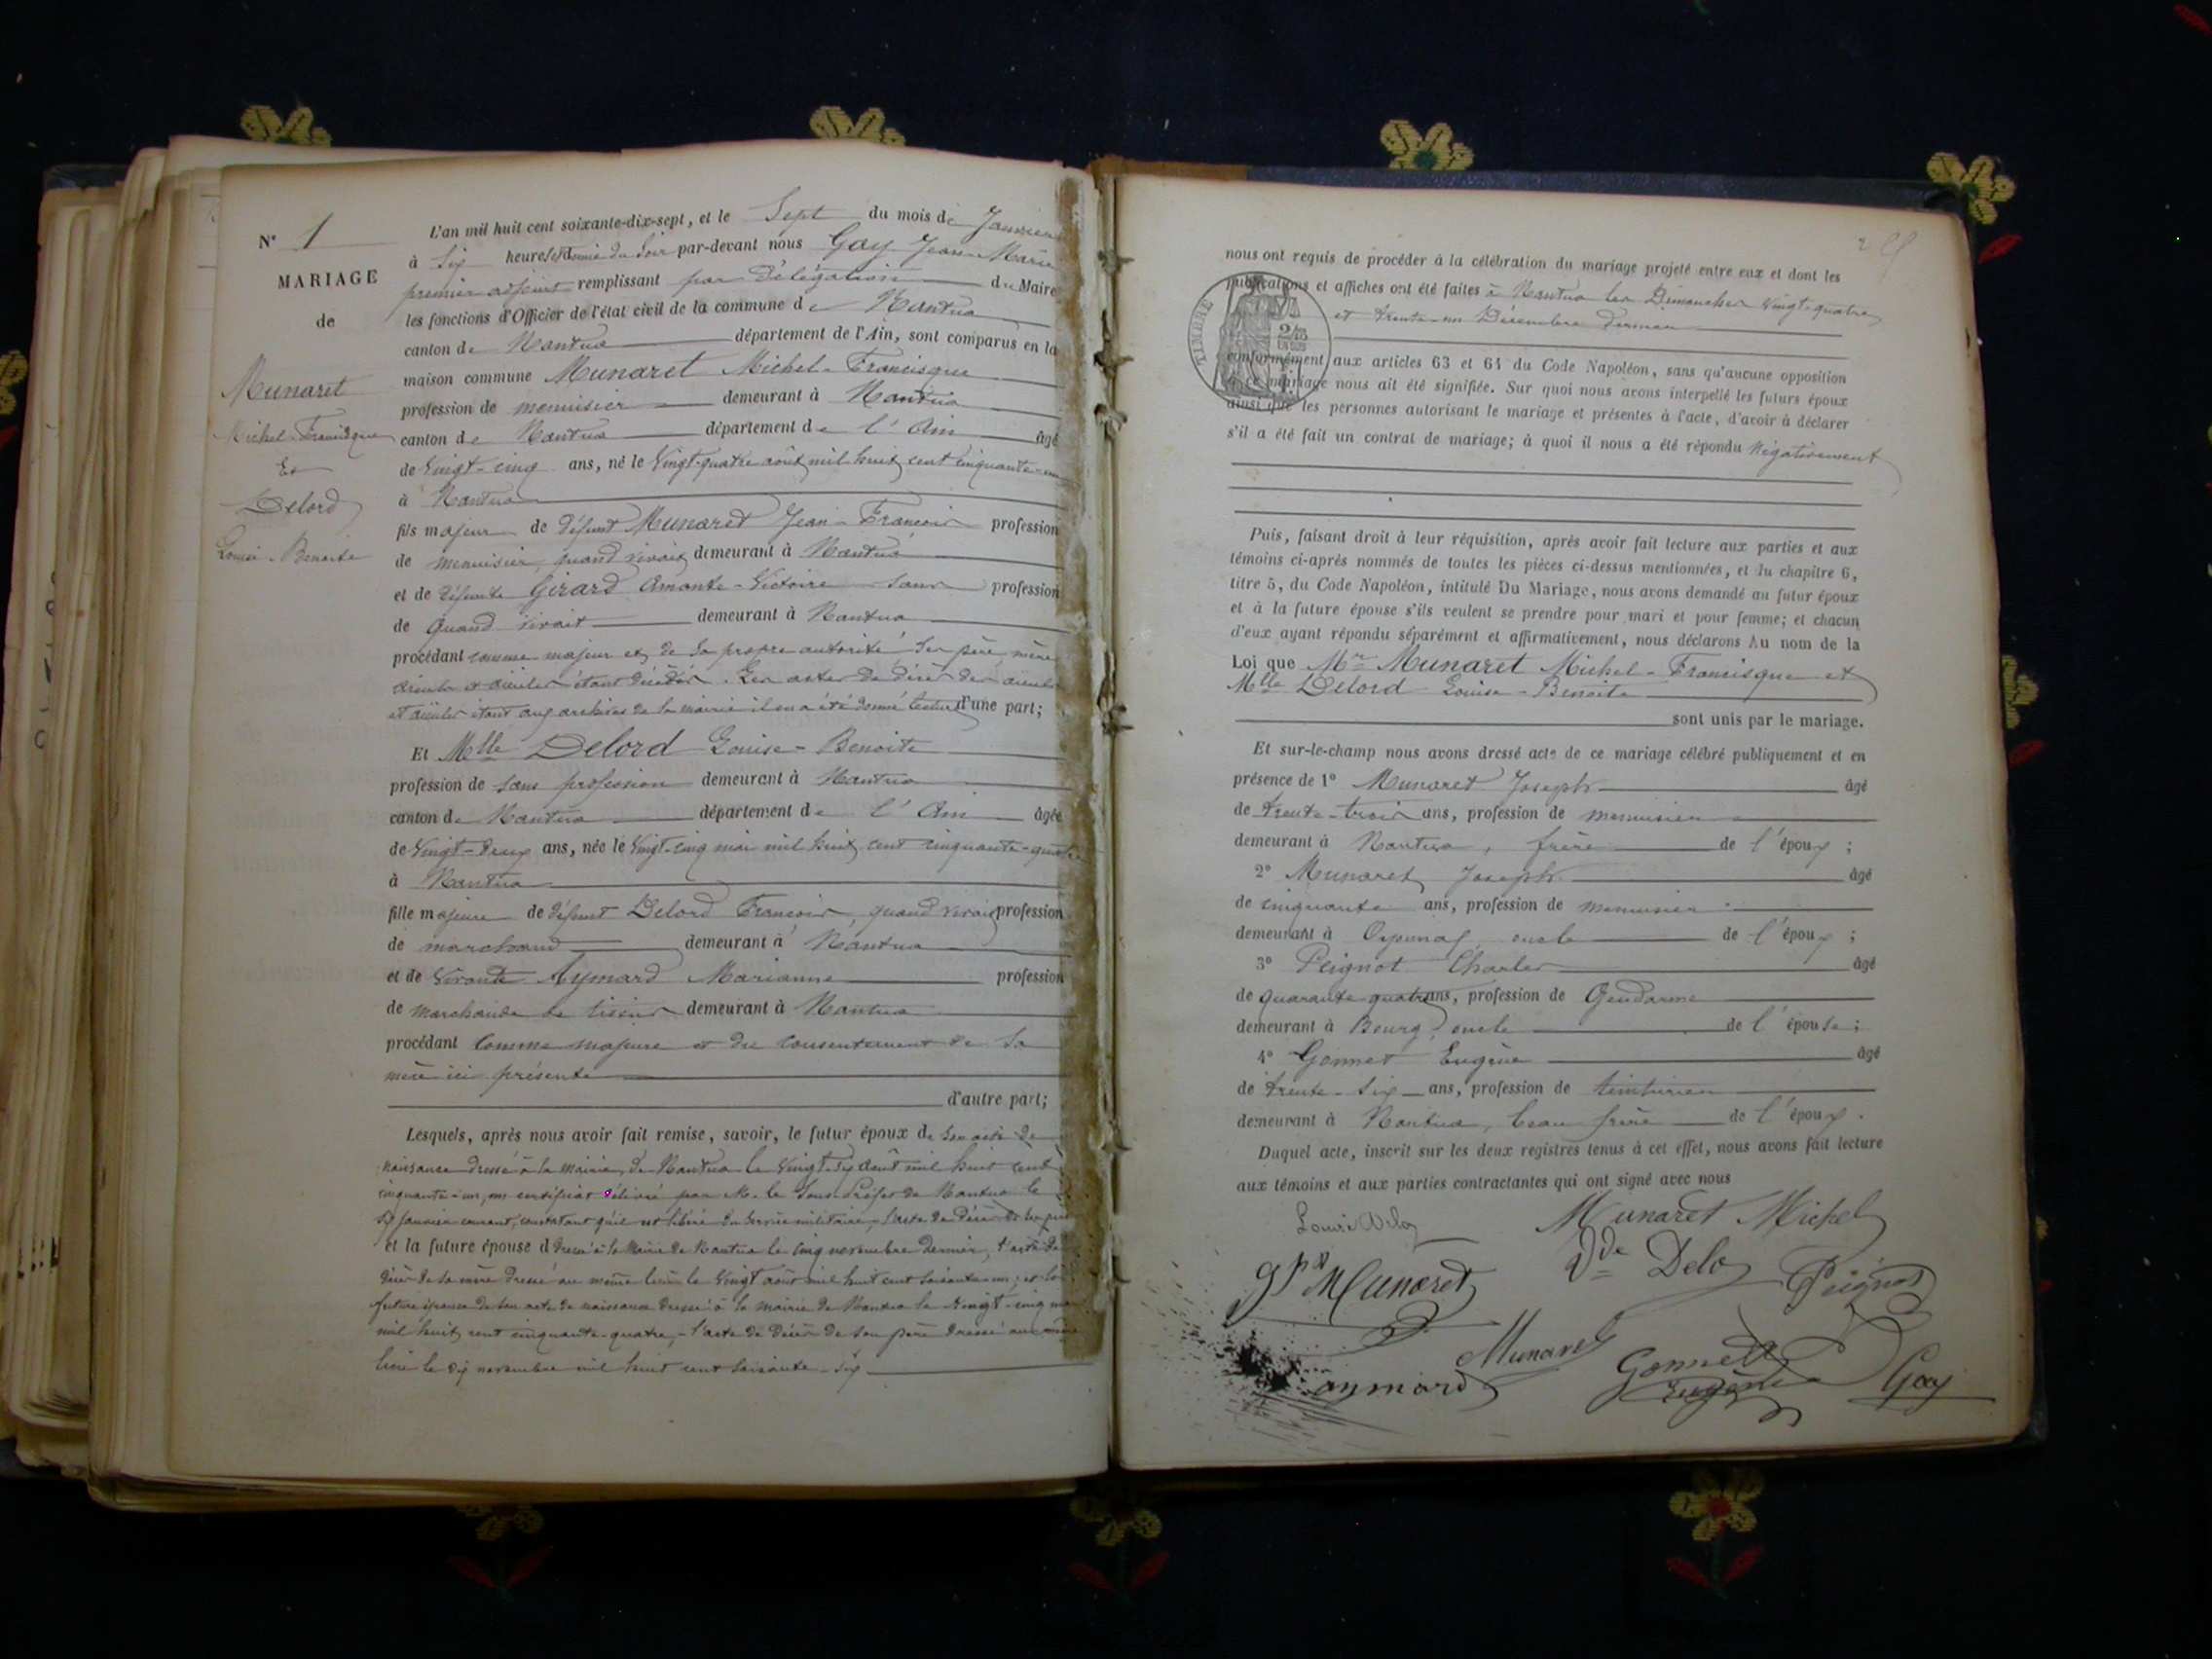 N° 1
MARIAGE
de
Munaret
Michel-Francisque
Et
Delord
Louise-Benoite
L'an mil huit cent soixante-dix-sept, et le Sept du mois de Janvier
à Six heures et demie du Soir par-devant nous Gay Jean-Marie
premier adjoint remplissant par Délégation du Maire
les fonctions d'Officier de l'état civil de la commune de Nantua
canton de Nantua département de l'Ain, sont comparus en la
maison commune Munaret Michel-Francisque
profession de menuisier demeurant à Nantua
canton de Nantua département de l'Ain âgé
de Vingt-cinq ans, né le Vingt-quatre août mil huit cent cinquante-un
à Nantua
fils majeur de défunt Munaret Jean-François profession
de menuisier, quand vivait demeurant à Nantua
et de défunte Girard Amante-Victoire sans profession
de quand vivait demeurant à Nantua
procédant comme majeur et de sa propre autorité Ses père, mère
aïeuls et aïeules étant décédés. Les actes de décès des aïeuls
et aïeules étant aux archives de la mairie il en a été donné lecture d'une part;
Et Melle Delord Louise-Benoite
profession de sans profession demeurant à Nantua
canton de Nantua département de l'Ain âgée
de Vingt-deux ans, née le Vingt-cinq mai mil huit cent cinquante-quatre
à Nantua
fille majeure de défunt Delord François, quand vivait profession
de marchand demeurant à Nantua
et de Vivante Aymard Marianne profession
de marchande de tissus demeurant à Nantua
procédant comme majeure et du consentement de Sa
mère ici présente
d'autre part;
Lesquels, après nous avoir fait remise, savoir, le futur époux de Son acte de
naissance dressé à la mairie de Nantua le Vingt-six août mil huit cent
cinquante-un, un certificat délivré par M. le Sous-Préfet de Nantua le
Six Janvier courant, constatant qu'il est libéré du Service militaire, l'acte de décès de son père
et la future épouse d dressé à la Mairie de Nantua le cinq novembre dernier, l'acte de
décès de sa mère dressé au même lieu le Vingt août mil huit cent soixante-un; et la
future épouse de son acte de naissance dressé à la mairie de Nantua le Vingt-cinq mai
mil huit cent cinquante-quatre,- l'acte de décès de son père dressé au même
lieu le dix novembre mil huit cent soixante-six
nous ont requis de procéder à la célébration du mariage projeté entre eux et dont les
publications et affiches ont été faites à Nantua les Dimanches Vingt-quatre
et trente-un Décembre dernier
conformément aux articles 63 et 64 du Code Napoléon, sans qu'aucune opposition
à ce mariage nous ait été signifiée. Sur quoi nous avons interpellé les futurs époux
ainsi que les personnes autorisant le mariage et présentes à l'acte, d'avoir à déclarer
s'il a été fait un contrat de mariage; à quoi il nous a été répondu Négativement
TIMBRE
Puis, faisant droit à leur réquisition, après avoir fait lecture aux parties et aux
témoins ci-après nommés de toutes les pièces ci-dessus mentionnées, et du chapitre 6,
titre 5, du Code Napoléon, intitulé Du Mariage, nous avons demandé au futur époux
et à la future épouse s'ils veulent se prendre pour mari et pour femme; et chacun
d'eux ayant répondu séparément et affirmativement, nous déclarons Au nom de la
Loi que Mr Munaret Michel-Francisque et
Melle Delord Louise-Benoite
sont unis par le mariage.
Et sur-le-champ nous avons dressé acte de ce mariage célébré publiquement et en
présence de 1° Munaret Joseph âgé
de trente-trois ans, profession de menuisier
demeurant à Nantua, frère de l'époux;
2° Munaret Joseph âgé
de cinquante ans, profession de menuisier
demeurant à Oyonnax, oncle de l'époux;
3° Peignot Charles âgé
de quarante quatre ans, profession de Gendarme
demeurant à Bourg, oncle de l'épouse;
4° Gonnet Eugène âgé
de trente-six ans, profession de teinturier
demeurant à Nantua, beau frère de l'époux.
Duquel acte, inscrit sur les deux registres tenus à cet effet, nous avons fait lecture
aux témoins et aux parties contractantes qui ont signé avec nous
Munaret Michel
Vde Delo
Munaret
Peignot
Munaret
aymard
Gonnet
Eugène
Gay